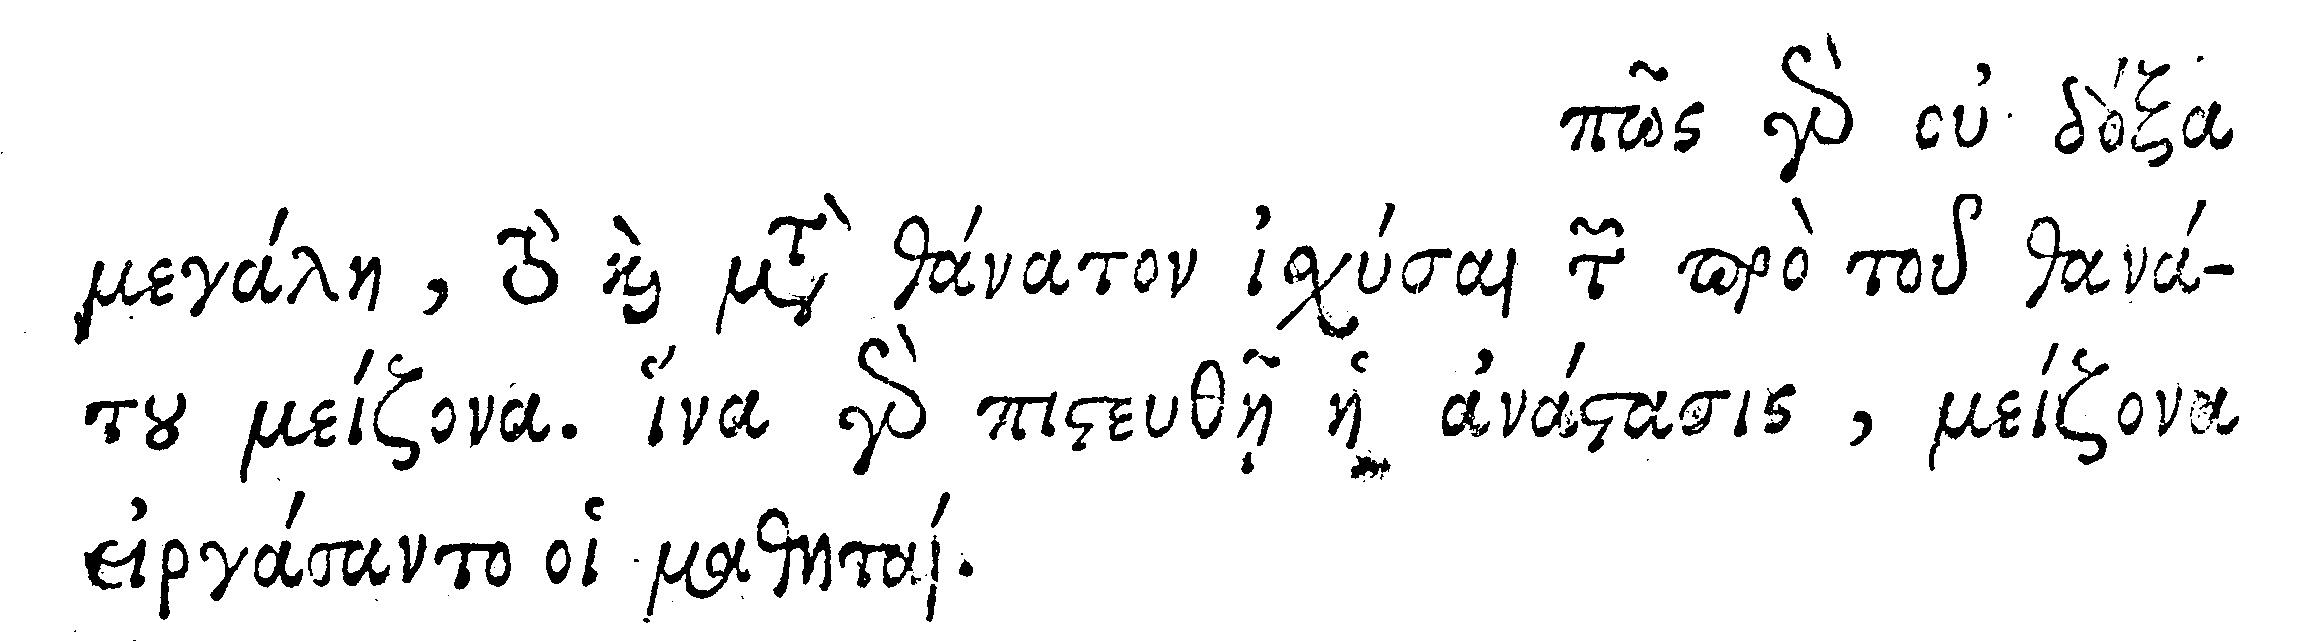 πῶς γὰρ οὐ δόξα
μεγάλη, τὸ καὶ μετὰ θάνατον ἰσχύσαι τῶν πρὸ τοῦ θανά-
του μείζονα. ἵνα γὰρ πιστευθῇ ἡ ἀνάστασις, μείζονα
εἰργάσαντο οἱ μαθηταί.